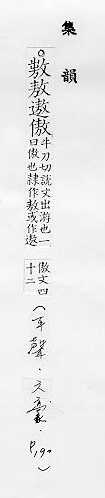 集韻
。敖遨傲牛刀切說文出游也一
曰傲也隸作敖或作遨
傲文四
十二
(平聲．六豪．P.190)